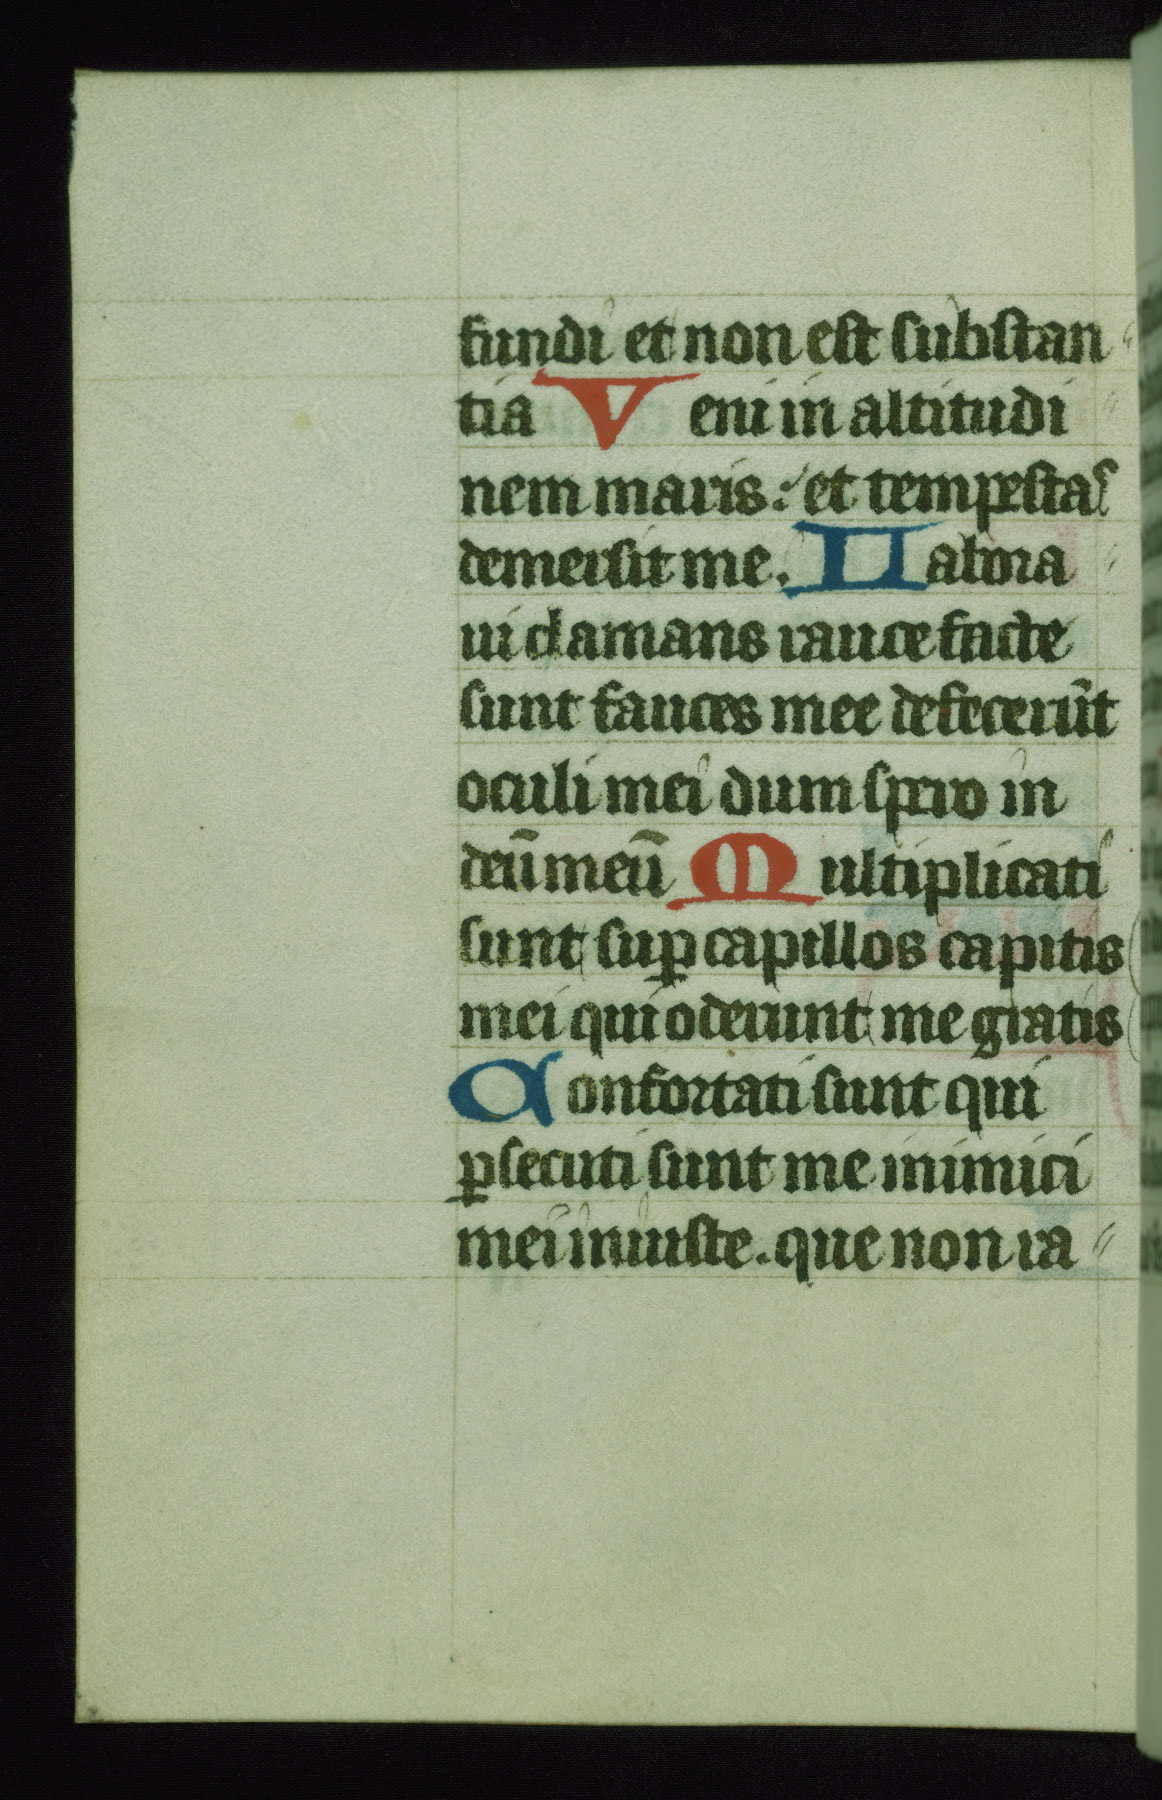 fundi et non est substan
tia Veni in altitudi
nem maris: et tempestas
demersit me. Labora
ui clamans rauce facte
sunt fauces mee defecerūt
oculi mei dum spero in
deū meū Multiplicati
sunt suꝑ capillos capitis
mei qui oderunt me gratis
Confortati sunt qui
ꝑsecuti sunt me inimici
mei iniuste. que non ra